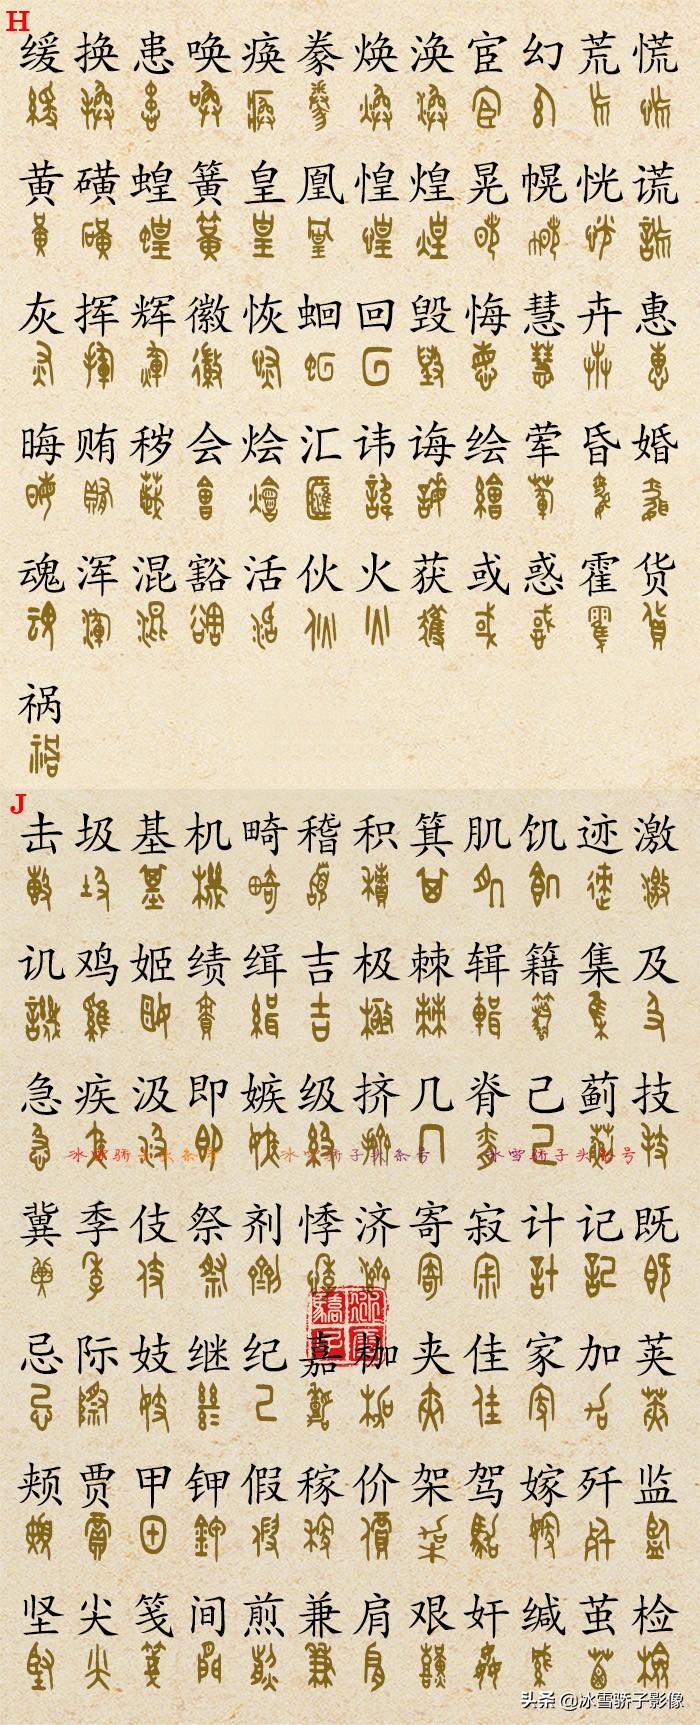 H
缓换患唤痪豢焕涣宦幻荒慌
黄磺蝗簧皇凰惶煌晃幌恍谎
灰挥辉徽恢蛔回毁悔慧卉惠
晦贿秽会烩汇讳诲绘荤昏婚
魂浑混豁活伙火获或惑霍货
祸
J
击圾基机畸稽积箕肌饥迹激
讥鸡姬绩缉吉极棘辑籍集及
急疾汲即嫉级挤几脊己蓟技
冀季伎祭剂悸济寄寂计记既
忌际妓继纪嘉枷夹佳家加荚
颊贾甲钾假稼价架驾嫁歼监
坚尖笺间煎兼肩艰奸缄茧检
冰雪骄子头条号
冰雪骄子头条号
冰雪骄子头条号
头条 @冰雪骄子影像